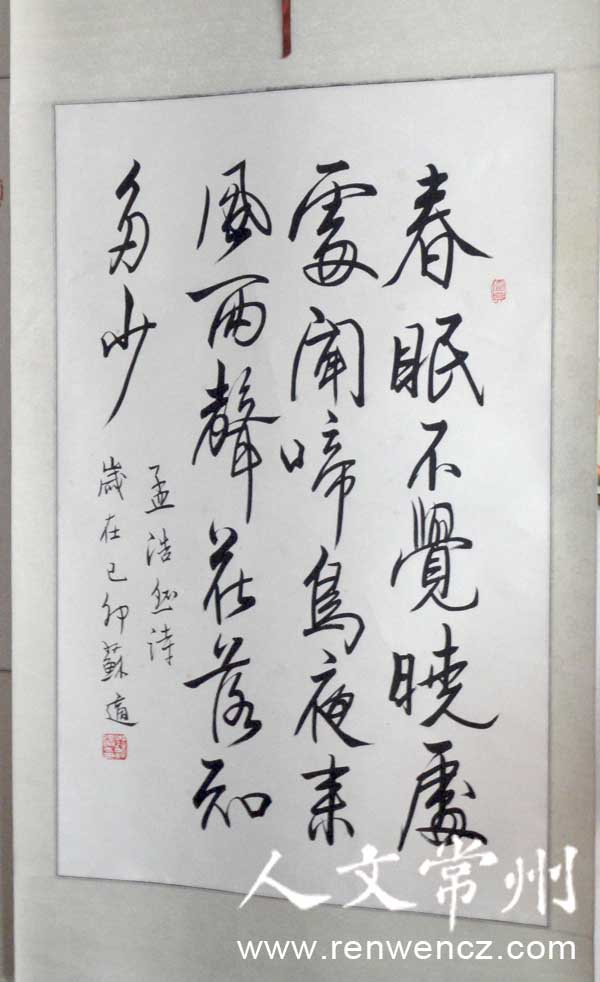 春眠不覺曉處
處聞啼鳥夜来
風雨聲花落知
多少
孟浩然詩
歲在己卯蘇適
人文常州
www.renwencz.com